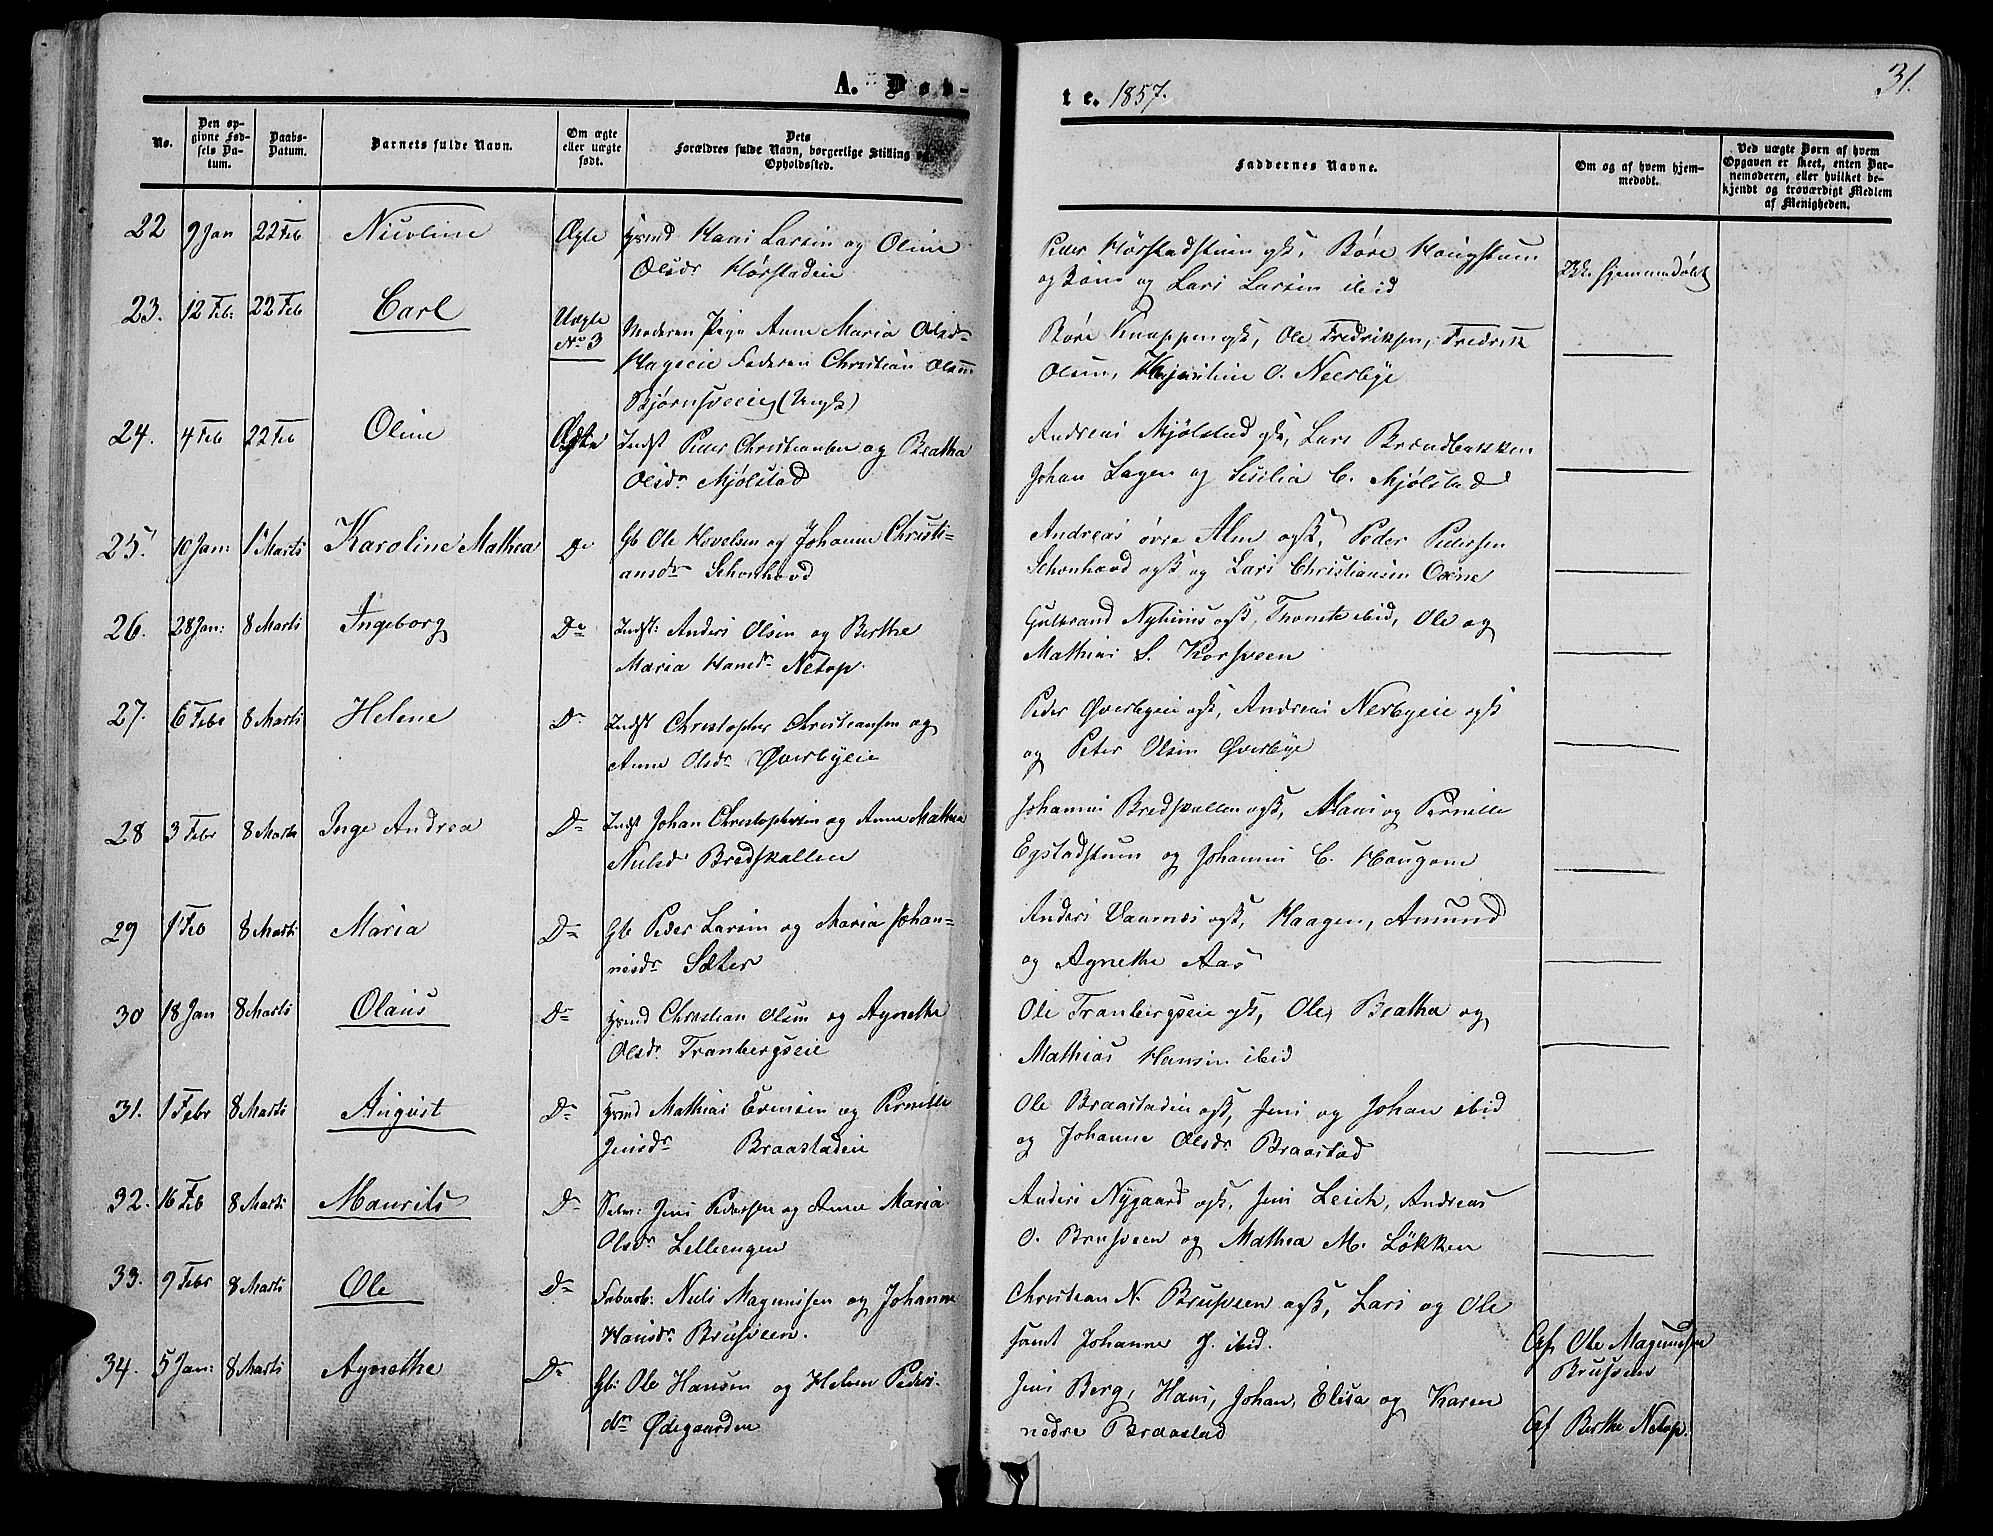 A. Døb-
te. 1857.
31.
No.
Den op-
givne Fød-
sels Da-
tum.
Daabs-
Datum.
Barnets fulde Navn.
Om ægte
eller uægte
født.
Dets
Forældres fulde Navn, borgerlige Stilling og
Opholdssted.
Faddernes Navne.
Om og af hvem hjem-
medøbt.
Ved uægte Børn af hvem
Opgaven er skeet, enten Bar-
nemoderen, eller hvilket be-
kjendt og troværdigt Medlem
af Menigheden.
22 9 Jan 22 Feb Nicoline Ægte Hans Larsen og Oline
Olsdr Hørstadeie
Peder Hørstadstuen gsk, Børe Haugstuen
og Lars Larsen ibid
Ikke hjemmedøbt
23. 12 Feb: 22 Feb Carl Uægte
No 3
Moderen Pige Anne Maria Olsdr
Hageeie Faderen Christian Olsen
Bjørnsveeie (Ungk)
Børe Knappen gsk, Ole Fredriksen, Fredrik
Olsen, Kjerstine O. Neerbye
24. 4 Feb 22 Feb Oline Ægte Indst Peder Christiansen og Beatha
Olsdr Mjølstad
Andreas Mjølstad gsk, Lars Brændbakken
Johan Lagen og Sisilia C. Mjølstad
25. 10 Jan: 1 Marts Karoline Mathea Do Gb Ole Hovelsen og Johanne Christi-
ansdr Schonhovd
Andreas øvre Alm gsk, Peder Pedersen
Schonhovd gsk og Lars Christiansen
26. 28 Jan: 8 Marts Ingeborg Do Indst: Anders Olsen og Berthe
Maria Hansdr Netop.
Gulbrand Nyhuus gsk, Thomte ibid, Ole og
Mathias S. Korsveen
27. 6 Febr 8 Marts Helene Do Indst Christopher Christiansen og
Anne Olsdr Øverbyeie
Peder Øverbyeie gsk, Andreas Nerbyeie gsk
og Peter Olsen Øverbye
28 3 Febr 8 Marts Inge Andrea Do Indst Johan Christophersen og Anne Mathea
Nielsdr Bredskallen
Johannes Bredskallen gsk, Hans og Pernille
Egstadstuen og Johannes C. Haugom
29 1 Feb 8 Marts Maria Do Gb Peder Larsen og Maria Johan-
nesdr Sæter
Anders Vannes gsk, Haagen, Amund
og Agnethe Aas
30 18 Jan 8 Marts Olaus Do Hsmd Christian Olsen og Agnethe
Olsdr Tranbergseie
Ole Tranbergseie gsk, Ole, Beatha og
Mathias Hansen ibid
31. 1 Febr 8 Marts August Do Hsmd Mathias Evensen og Pernille
Jensdr Braastadeie
Ole Braastadeie gsk, Jens og Johan ibid
og Johanne Olsdr Braastad
32. 16 Feb 8 Marts Maurits Do Selv: Jens Pedersen og Anne Maria
Olsdr Lilleengen
Anders Nygaard gsk, Jens Leich, Andreas
O. Brusveen og Mathea M. Løkken
33. 9 Febr 8 Marts Ole Do Niels Magnussen og Johanne
Hansdr Brusveen.
Christian N. Brusveen gsk, Lars og Ole
samt Johanne J. ibid.
Af Ole Magnussen
Brusveen
34. 5 Jan: 8 Marts Agnethe Do Gb: Ole Hansen og Helene Peders-
dr Ødegaarden
Jens Berg, Hans, Johan, Elisa og Karen
nedre Braastad
Af Berthe Netop.